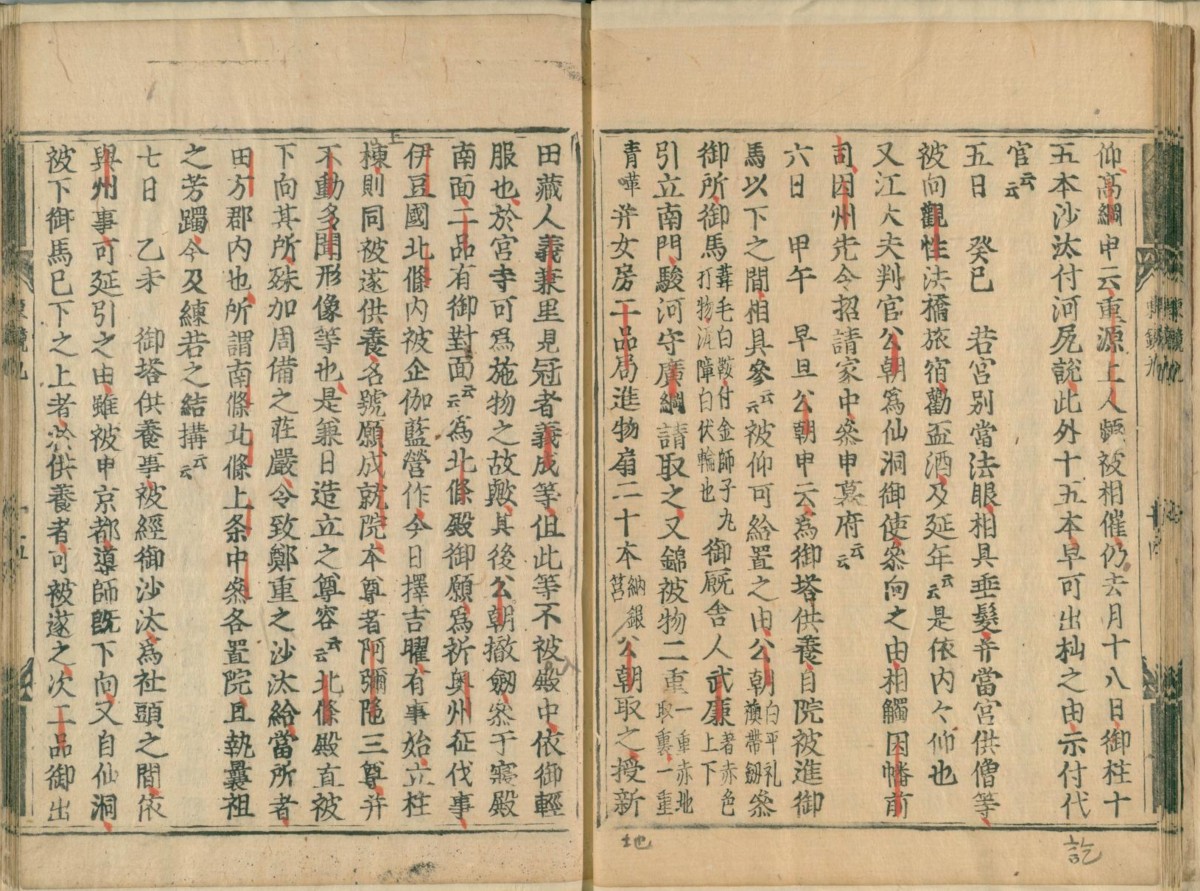 仰高綱申云重源上人頻被相催仍去月十八日御柱十
五本沙汰付河尻訖此外十五本早可出杣之由示付代
官云云
五日　癸巳　若宮別當法眼相具垂髮并當宮供僧等
被向觀性法橋旅宿勸盃酒及延年云云是依内々仰也
又江大夫判官公朝為仙洞御使參向之由相觸因幡前
司因州先令招請家中參申幕府云云
六日　甲午　早旦公朝申云為御塔供養自院被進御
馬以下之間相具參云云被仰可給置之由公朝白平礼薄帶劔參
御所御馬葦毛白鞍付金師子丸打物泥障白伏輪也御厩舎人武康著赤色上下
引立南門駿河守廣綱請取之又錦被物二重一重赤地取裏一重
青嘩并女房二品局進物扇二十本納銀筥公朝取之授新
田藏人義兼里見冠者義成等但此等不被殿中依御輕
服也於宮寺可為施物之故歟其後公朝撤劔參于寢殿
南面二品有御對面云云為北條殿御願為祈奥州征伐事
伊豆國北條内被企伽藍營作今日擇吉曜有事始立柱
上
棟則同被遂供養名號願成就院本尊者阿彌陀三尊并
不動多聞形像等也是兼日造立之尊容云云北條殿直被
下向其所殊加周備之莊嚴令致鄭重之沙汰給當所者
田方郡内也所謂南條北條上条中条各置院且執曩祖
之芳躅今及練若之結搆云云
七日　乙未　御塔供養事被經御沙汰為社頭之間依
奥州事可延引之由雖被申京都導師既下向又自仙洞
被下御馬已下之上者於供養者可被遂之次二品御出
訖
地